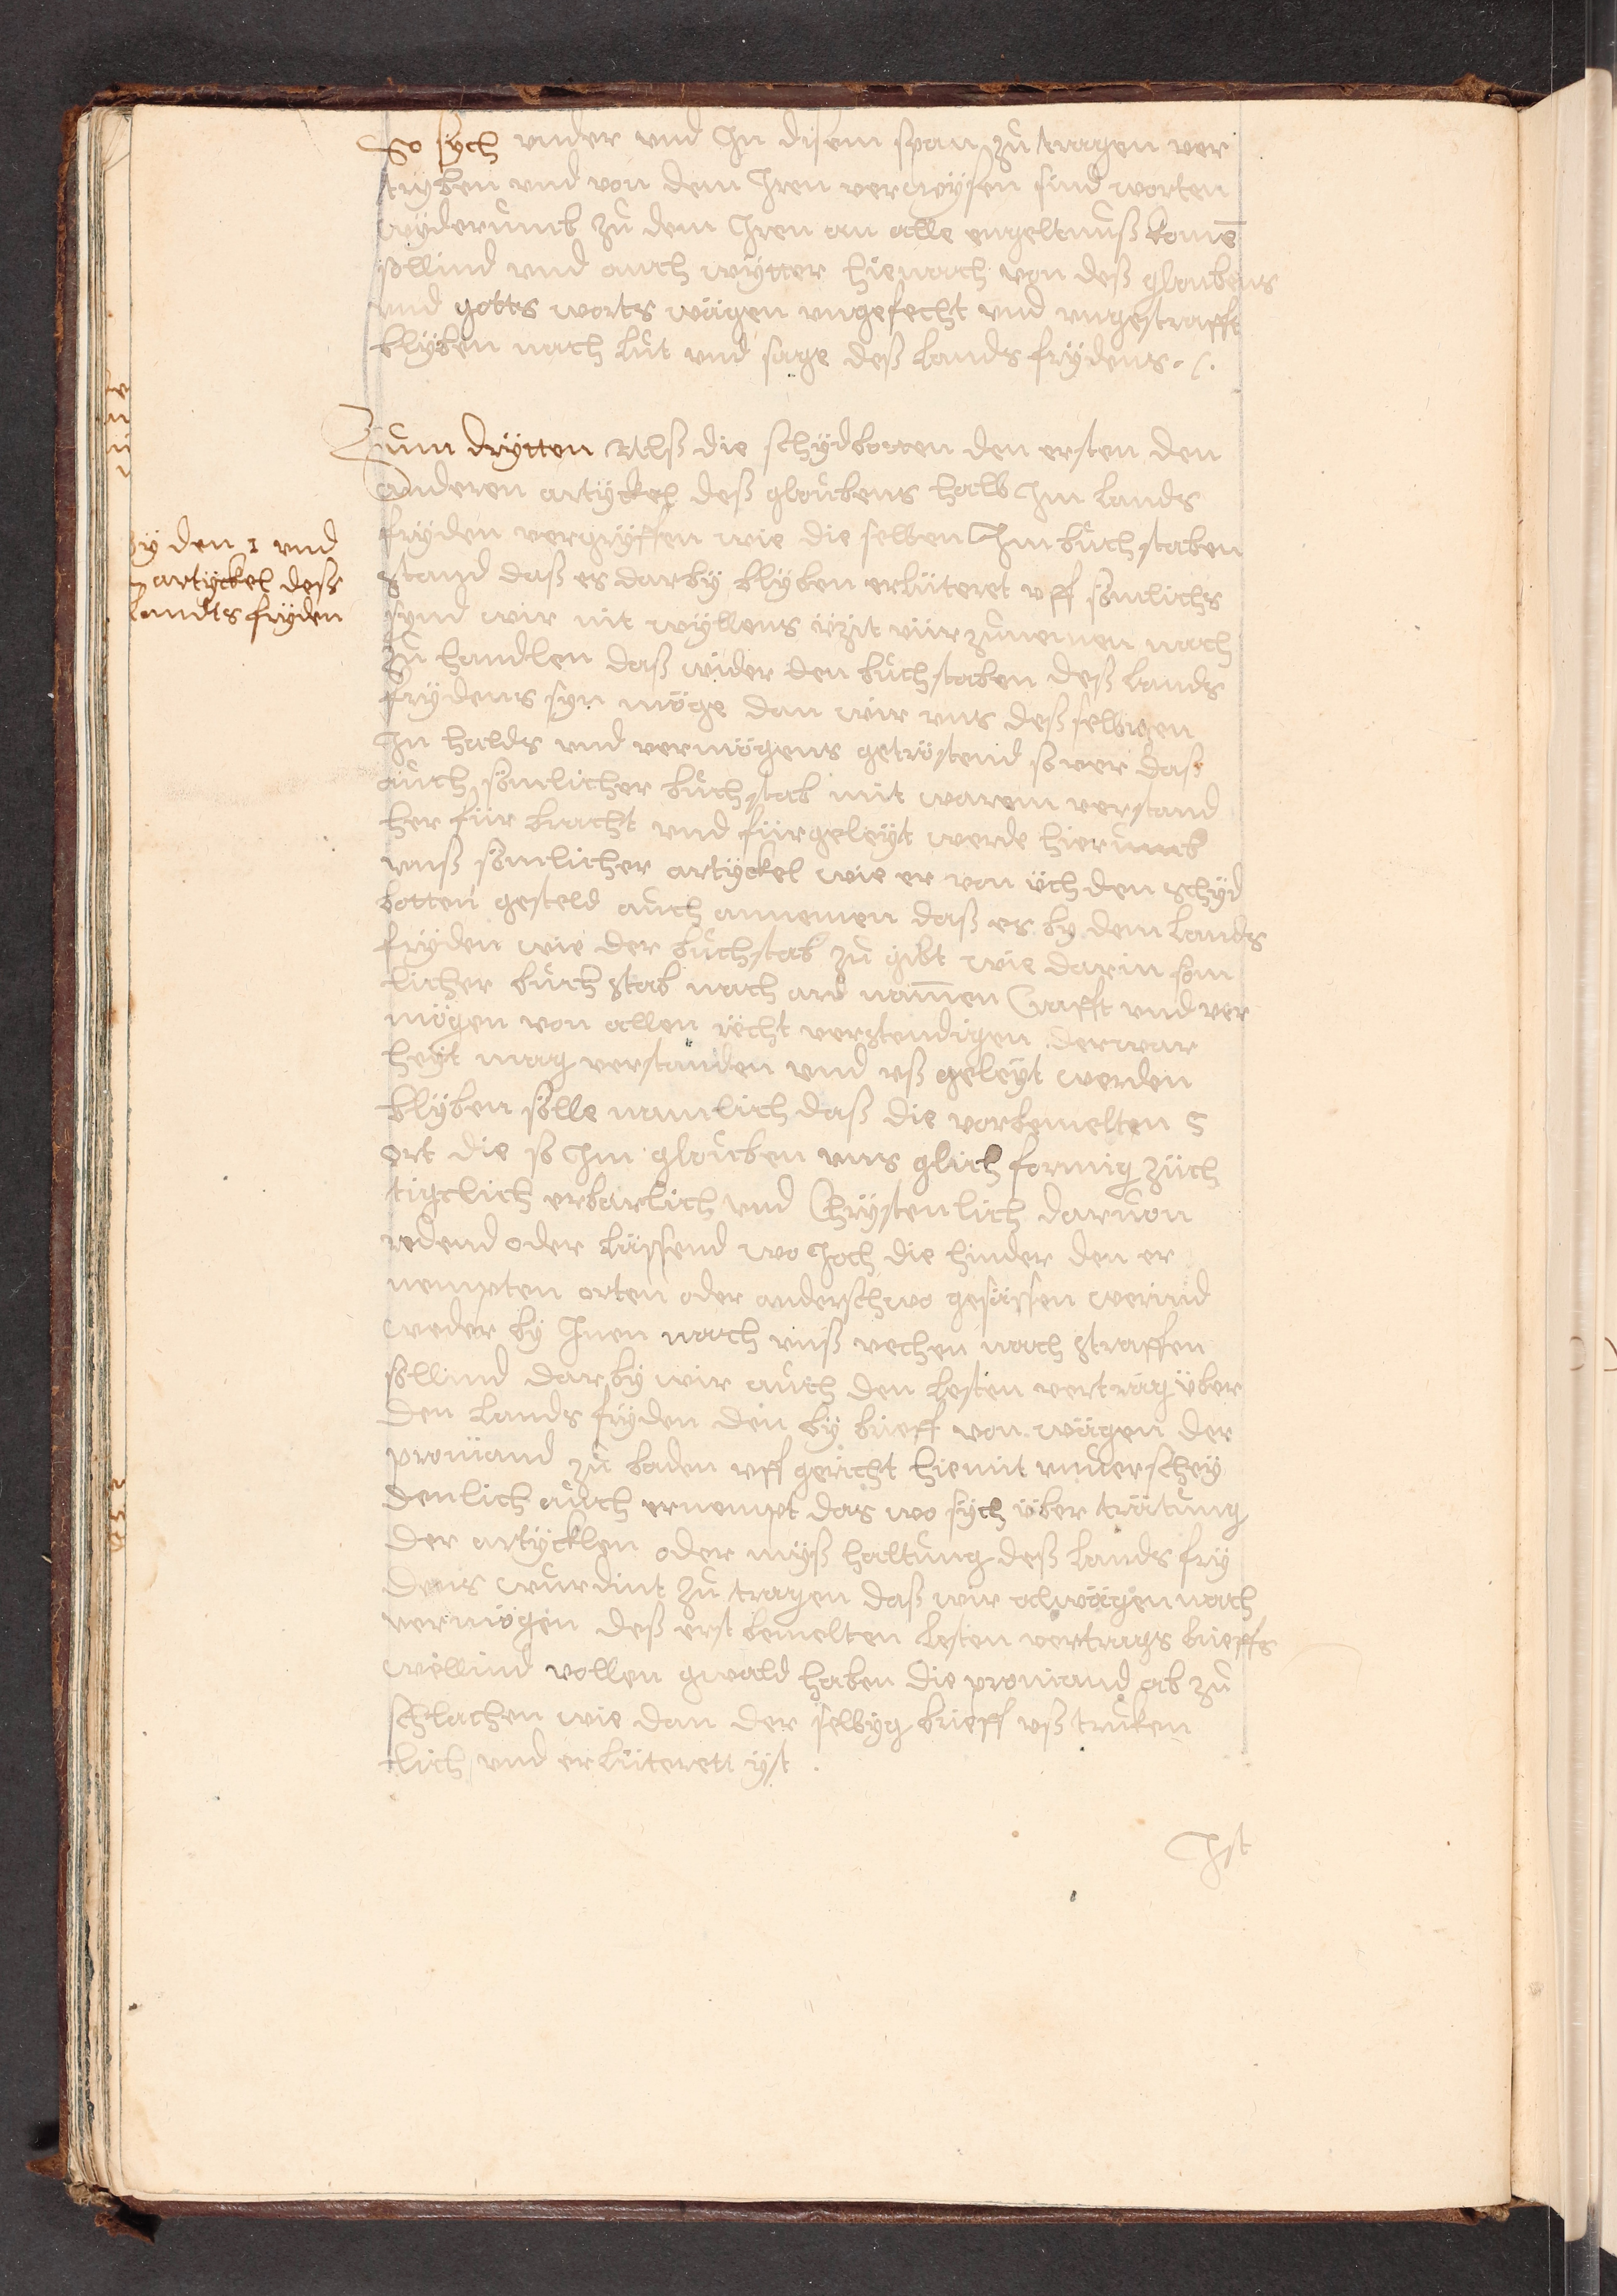 So sÿch vnder vnd Jn disem span zů tragen ver
tryben vnd von dem Jren verwÿsen sind worten
wÿderumb zů dem Jren an alle engeltnuß komē
sollind vnd auch wÿtter hienach von deß gloubens
vnd gotts worts wägen vngefecht vnd vngestrafft
blÿben nach lut vnd sage deß Lands frÿdens
Zum drÿtten Alß die schÿdbotten den ersten den
anderen artÿckel deß gloubens halb Jm lands
frÿden vergrÿffen wie die selben Jm bůchstaben
stand daß es darbÿ blÿben erlüteret vff sömlichs
synd wir nit wÿllens üzit vür zůnemen nach
zů handlen daß wider den bůchstaben deß Lands
frÿdens syn möge dan wir vns deß selbigen
Jn halds vnd vermögens getröstend so ver daß
auch sömlicher bůchstab mit warem verstand
her für bracht vnd fürgeleÿt werde hierumb
vnß sömlicher artÿckel wie er von üch den schÿd
botten gesteld auch annemen daß es by dem Lands
frÿden wie der bůchstab zů gibt wie darin söm
licher bůchstab nach ard nammen Crafft vnd ver
mögen von allen recht verstendigen der war
heÿt mag verstanden vnd vß geleÿt werden
blÿben sölle namlich daß die vorbemelten 5
ort die so Jm glouben vns glich formig züch
tigclich erbarlich vnd Christenlich daruon
redend oder läsend wo Joch die hinder den er
nempten orten oder anderschwo gesässen werind
weder bÿ Jnen nach vnß vechen nach straffen
sollind darbÿ wir auch den lesten vertrag über
den Lands frÿden den bÿ brieff von wägen der
proniand zů baden vff gericht hiemit vnderscheÿ
denlich auch ernempt das wo sÿch über trätung
der artÿcklen oder mÿß haltung deß Lands frÿ
dens wurdint zů tragen daß wir alwägen nach
vermögen deß erst bemelten lesten vertrags brieffs
wellind vollen gwald haben die proniand ab zů
schlachen wie dan der selbÿg brieff vß truken
lich vnd erlüterett ÿst
Jst
bÿ den 1 vnd
artÿckel deß
Landts frÿden